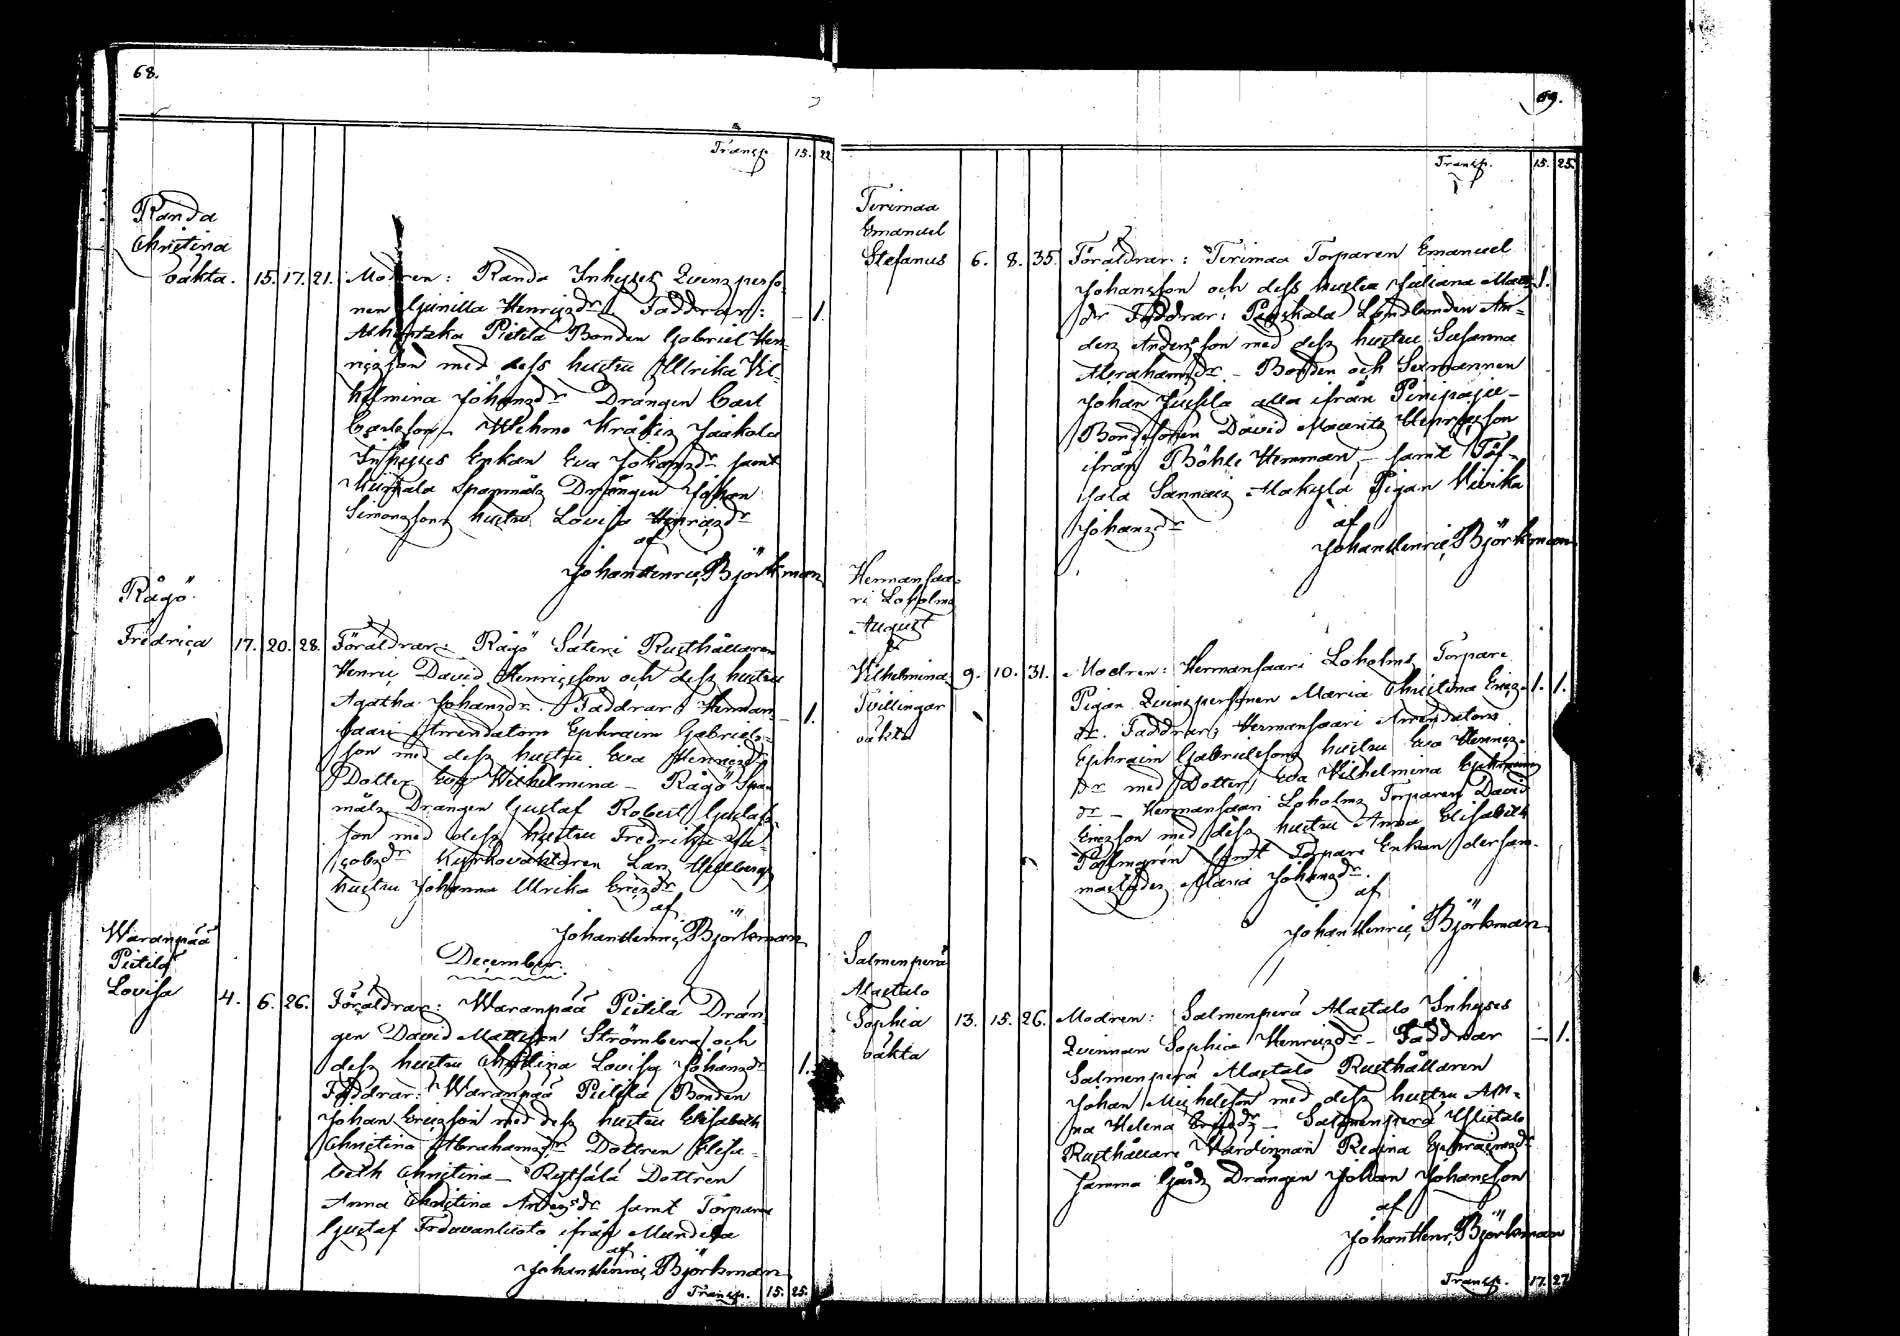 68.
Transp. 15. 22
Randa
Christina
oäkta. 15. 17. 21. Modren: Randa Inhyses Qvinsperso-
nen Gunilla Henricsdr Faddrar: 1.
Pietilä Bonden Gabriel Hen-
ricsson med dess hustru Ulrika Vil-
helmina Johansdr Drängen Carl
Carlsson – Wehmo Kräkis Jaakola
Inhyses Enkan Eva Johansdr samt
Spannmåls Drängen Johan
Simonssons hustru Lovisa Henricsdr
af
Johan Henric Björkman
Rågö
Fredrica 17. 20. 28. Föräldrar: Rågö Säteri Rusthållaren
Henric David Henricsson och dess hustru
Agatha Johansdr. Faddrar: Herman- 1.
saari Arrendatorn Ephraim Gabriels-
son med dess hustru Eva Henricsdr
Dotter Eva Wilhelmina – Rågö Span-
måls Drängen Gustaf Robert Gustafs-
son med dess hustru Fredrika Ja-
cobsdr Kyrkovaktaren Lars
hustru Johanna Ulrika Ericsdr
af
Johan Henric Björkman
December.
Waranpää
Pietilä
Lovisa 4. 6. 26. Föräldrar: Waranpää Pietilä Drän-
gen David Mattsson Strömberg och
dess hustru Christina Lovisa Johansdr 1.
Faddrar: Waranpää Pietilä Bonden
Johan Ericsson med dess hustru Elisabeth
Christina Abrahamsdr Dottren Elisa-
beth Christina – Dottren
Anna Christina Andersdr samt Torparen
Gustaf ifrån
af
Johan Henric Björkman
Transp. 15. 25.
69.
Transp. 15. 25.
Tirimaa
Emanuel
Stefanus 6. 8. 35. Föräldrar: Tirimaa Torparen Emanuel
Johansson och dess hustru Juliana Matts- 1.
dr Faddrar: Landbonden An-
ders Andersson med dess hustru Susanna
Abrahamsdr – Bonden och Sexmannen
Johan Jussila alla ifrån Pinipaju –
Bondesonen David Maurits Henricsson
ifrån Böhle Hemman, – samt Töf-
sala Sannais Alakylä Pigan Vivika
Johansdr
af
Johan Henric Björkman
Hermansaa-
ri Loholms
August
&
Vilhelmina 9. 10. 31. Modren: Hermansaari Loholms Torpare
Tvillingar
oäkta
Pigan Qvinspersonen Maria Christina Erics- 1. 1.
dr. Faddrar; Hermansaari Arrendatorn
Ephraim Gabrielssons hustru Eva Henrics-
dr med Dotter Eva Vilhelmina Ephraims-
dr – Hermansaari Loholms Torparen David
Ericsson med dess hustru Anna Elisabeth
Palmgrén samt Torpare Enkan dersam-
mastädes Maria Johansdr.
af
Johan Henric Björkman
Salmenperä
Alastalo
Sophia 13. 15. 26. Modren: Salmenperä Alastalo Inhyses
oäkta
Qvinnan Sophia Henricsdr – Faddrar – 1.
Salmenperä Alastalo Rusthållaren
Johan Michelsson med dess hustru An-
na Helena Ericsdr – Salmenperä Ylistalo
Rusthållare Värdinnan Regina Ephraimsdr
samma Gårds Drängen Johan Johansson
af
Johan Henr. Björkman
Transp. 17. 27